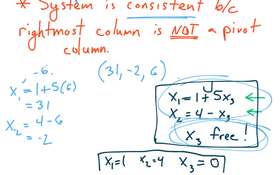 * System is consistent b/c
rightmost column is NOT a pivot
column.
-6.
x₁ = 1 + 5(6)
= 31
x₂ = 4 - 6
= -2
(31, -2, 6)
x₁ = 1 + 5x₃
x₂ = 4 - x₃
x₃ free!
x₁ = 1 x₂ = 4 x₃ = 0